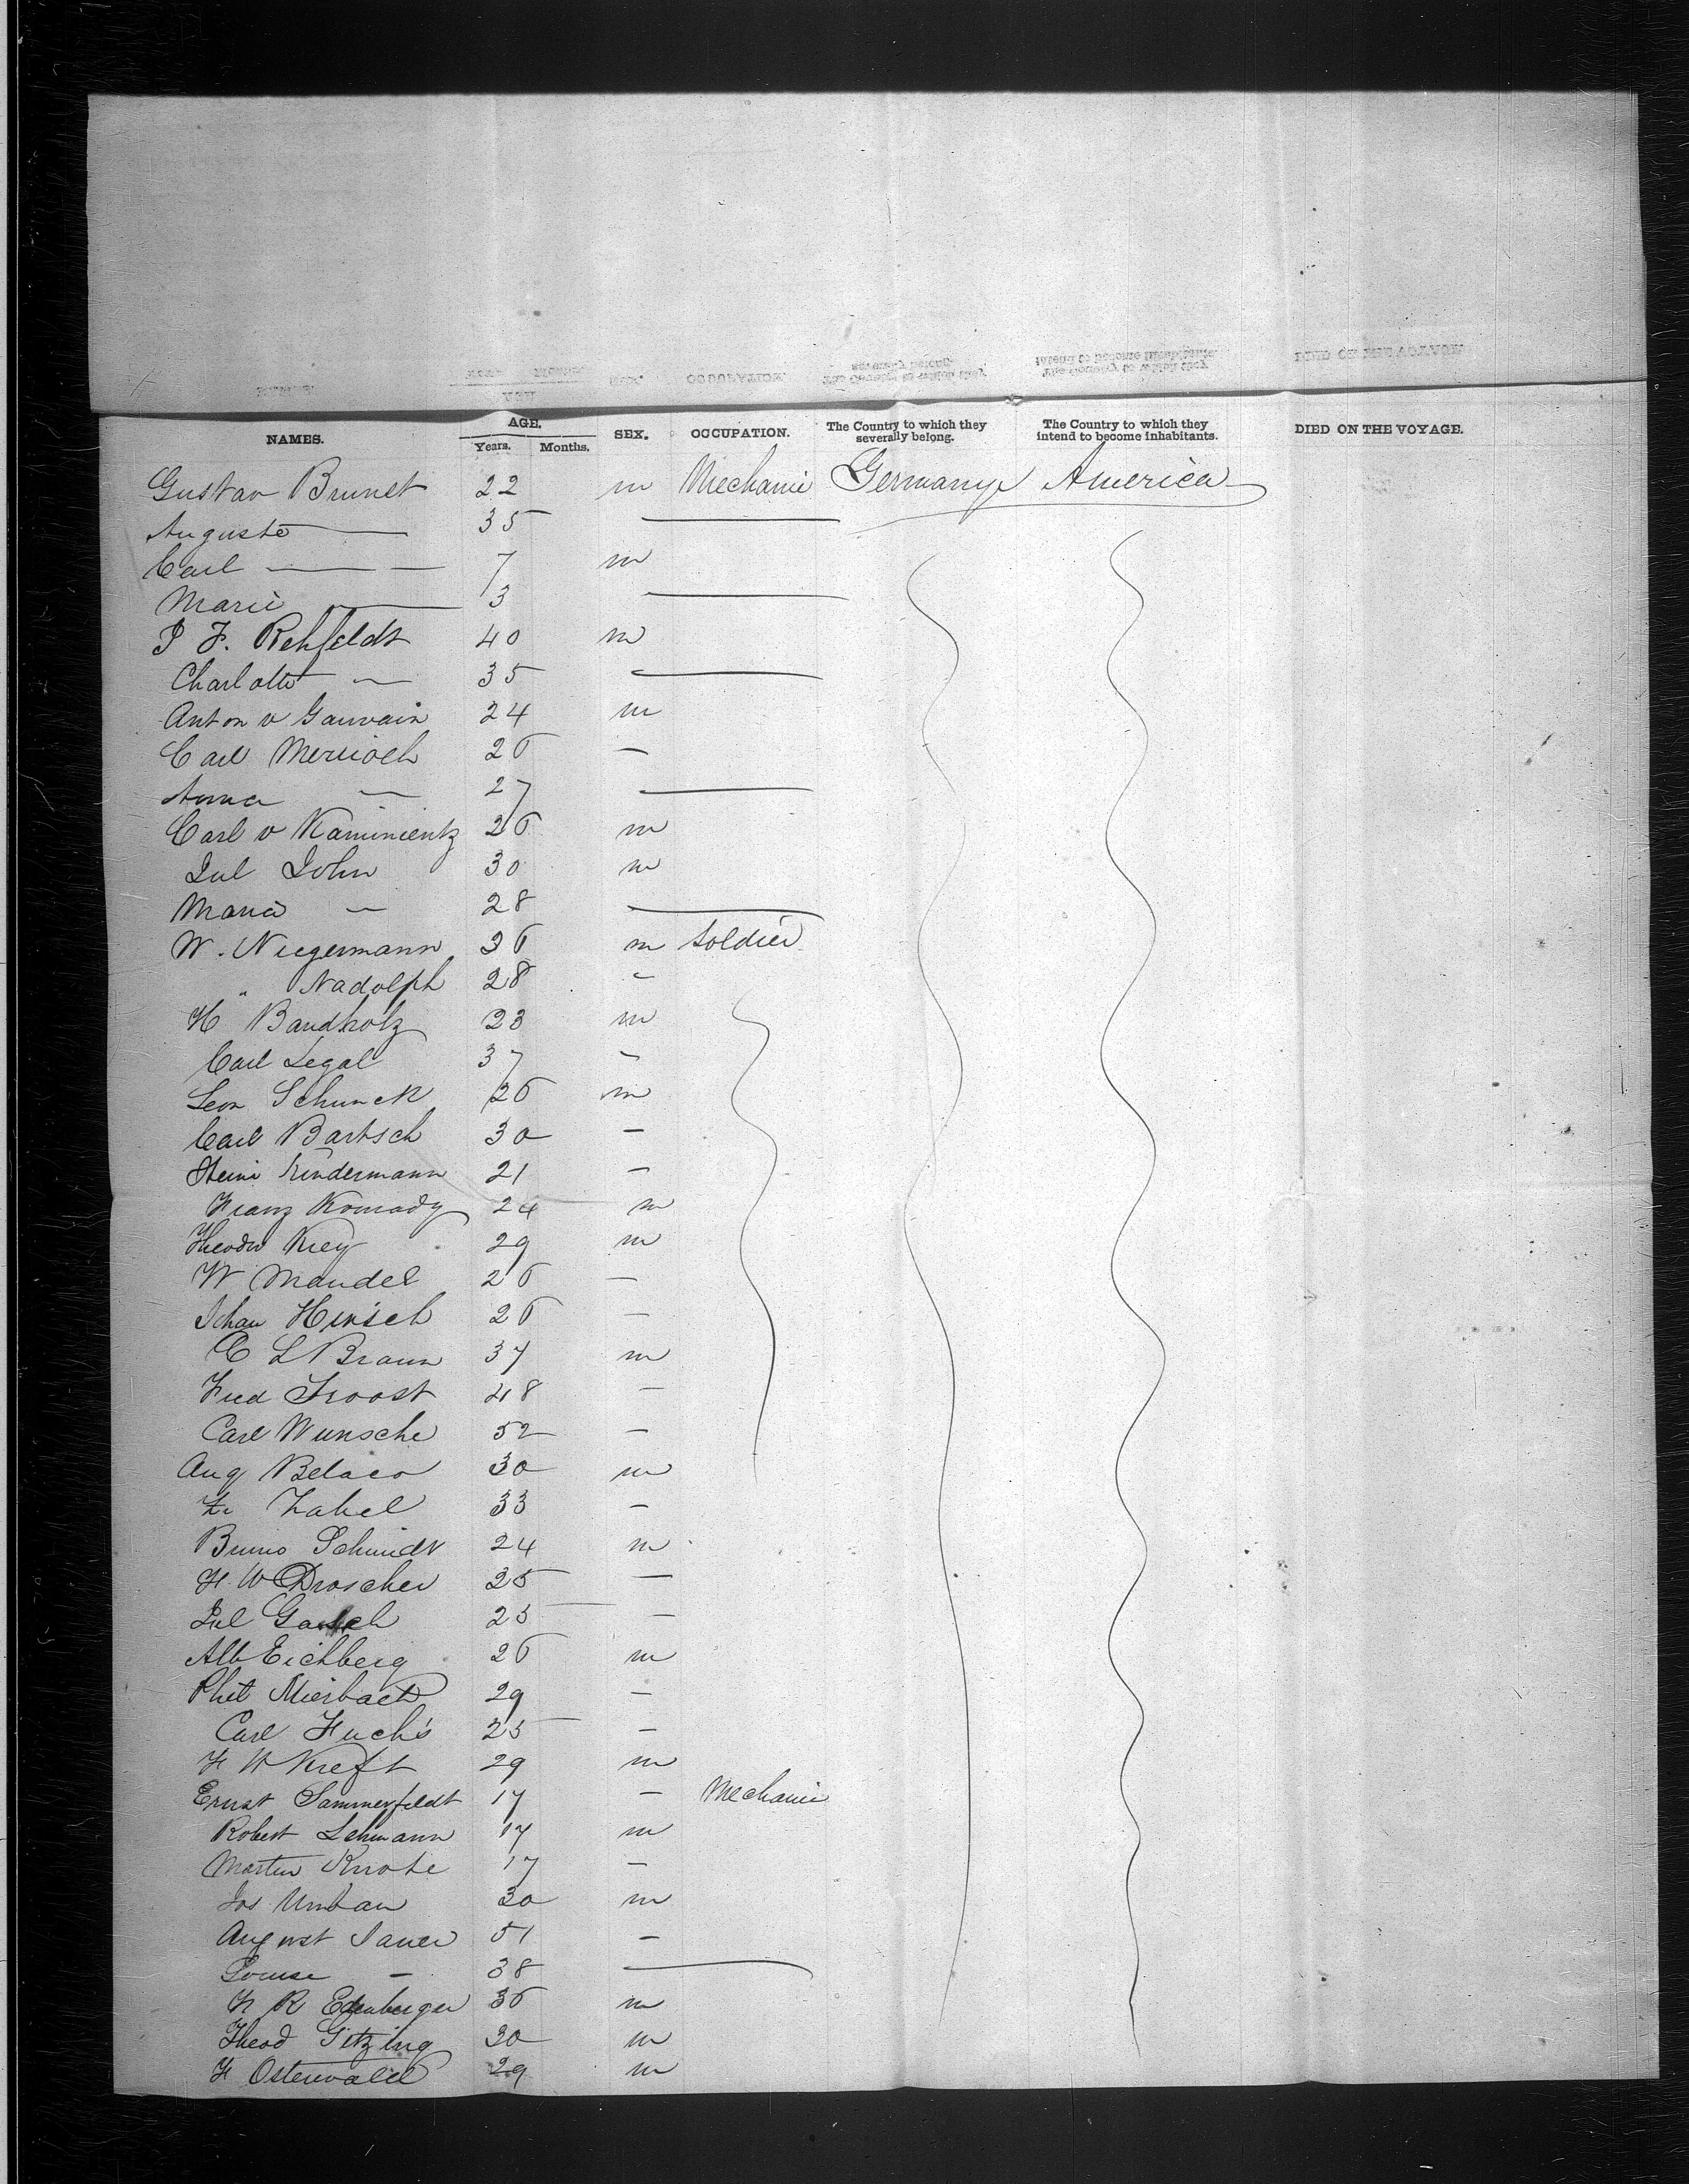 NAMES. AGE. Years. Months. SEX. OCCUPATION. The Country to which they severally belong. The Country to which they intend to become inhabitants. DIED ON THE VOYAGE.
Gustav Brunet 22 m Mechanic Germany America
Auguste — 35 —
Carl — 7 m
Marie — 3 —
J F. Rehfeldt 40 m
Charlotte — 35 —
Anton v Gauvain 24 m
Carl 26 —
Anna — 27 —
Carl v Kaminientz 26 m
Jul John 30 m
Maria — 28 —
W. Niegermann 36 m Soldier
" Nadolph 28 -
H Bandholz 23 m
Carl Legal 37 -
Leon Schunck 26 m
Carl Bartsch 30 —
Heinr Lindermann 21 —
Franz Konrady 24 m
Theodor Krey 29 m
W Mandel 26 —
Johan Hinsch 26 —
C L Braun 37 m
Fred Troost 48 —
Carl Wunsche 52 —
Aug Belaco 30 m
Fr Zabel 33 —
Bruno Schmidt 24 m
H. W Droscher 25 —
Jul 25 —
Alb Eichberg 26 m
Phil Mierbach 29 —
Carl Fuchs 25 —
H W Kreft 29 m
Ernst Sammerfeldt 17 — Mechanic
Robert Lehmann 17 m
Martin Knote 17 —
Jos Urban 30 m
August Sauer 51 —
Louise — 38 —
H R Edenberger 36 m
Theod Gitzing 30 m
H Osterwald 29 m